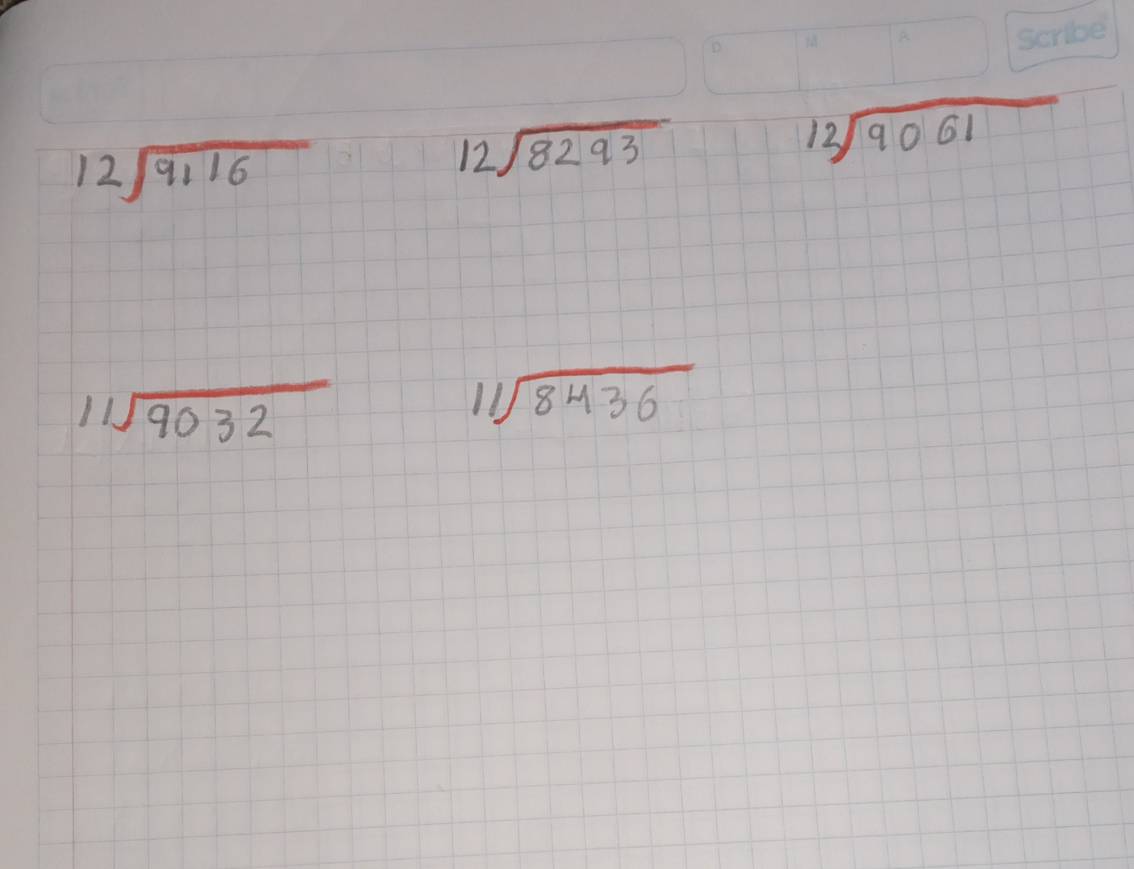 D M A Scribe
12√9116 12√8293 12√9061
11√9032 11√8436